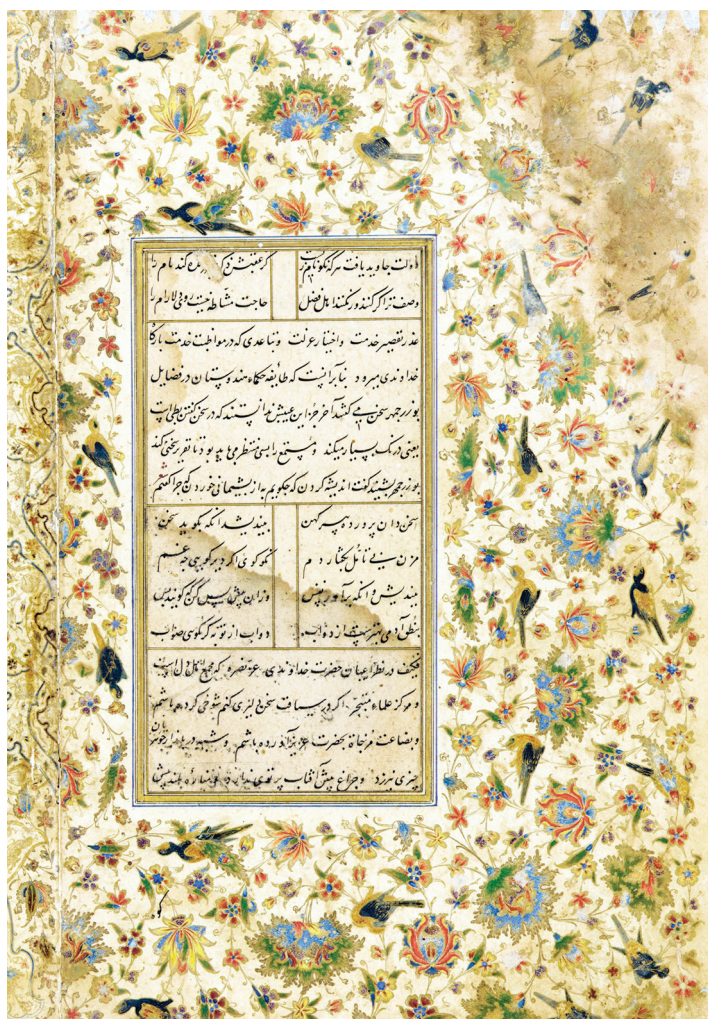 دولت جاوید یافت هر که نکونام زیست کز عقبش ذکر خیر زنده کند نام را
وصف ترا گر کنند ور نکنند اهل فضل حاجت مشاطه نیست روی دلارام را
عذر تقصیر خدمت و اختیار عزلت و تباعدی که در مواظبت خدمت بارگاه
خداوندی میرود بنا بر آنست که طایفه حکماء هندوستان در فضایل
بوزرجمهر سخن می کنند آخر جز این عیبش ندانستند که در سخن گفتن بطی است
یعنی درنک بسیار میکند و مستمع را بسی منتظر می باید بود تا تقریر سخنی کند
بوزرجمهر بشنید گفت اندیشه کردن که چه گویم به از پشیمانی خوردن که چرا گفتم
سخن دان پرورده پیر کهن بیندیشد آنکه بگوید سخن
مزن بی تأمل بگفتار دم نکو گوی اگر دیر گویی چه غم
بیندیش وانکه برآور نفس وزان پیش بس کن که گویند بس
بنطق آدمی بهترست از دواب دواب از تو به گر نگوی صواب
فکیف در نظر اعیان حضرت خداوندی عز نصره که مجمع اهل دل است
و مرکز علماء متبحر اگر در سیاقت سخن دلیری کنم شوخی کرده باشم
و بضاعت مزجاة بحضرت عزیز آورده باشم و شبه در بازار جوهریان
چیزی نیرزد و چراغ پیش آفتاب پرتوی ندارد و مناره بلند پیش
کوه